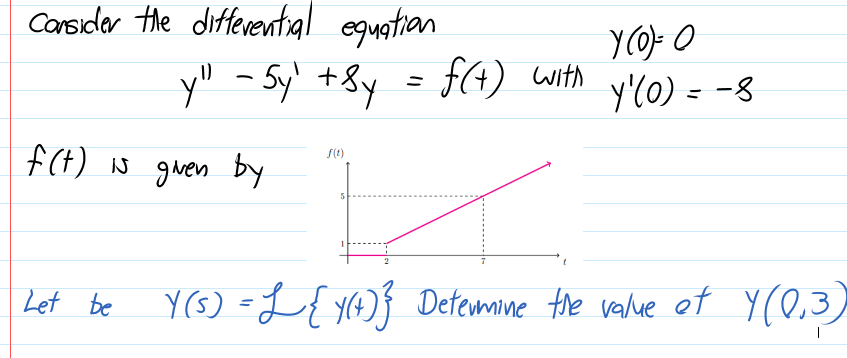 Consider the differential equation
y(0)= 0
y'' - 5y' + 8y = f(t) with y'(0) = -8
f(t) is given by
f(t)
5
1
2 7 t
Let be Y(s) = ℒ{y(t)} Determine the value of Y(0,3)